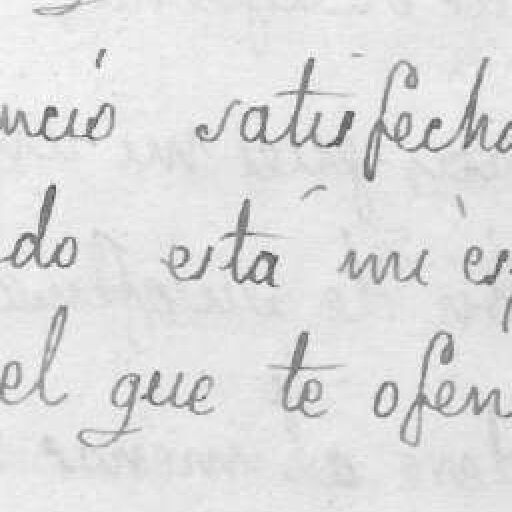 nció satisfecha
do está mi es
el que te ofen